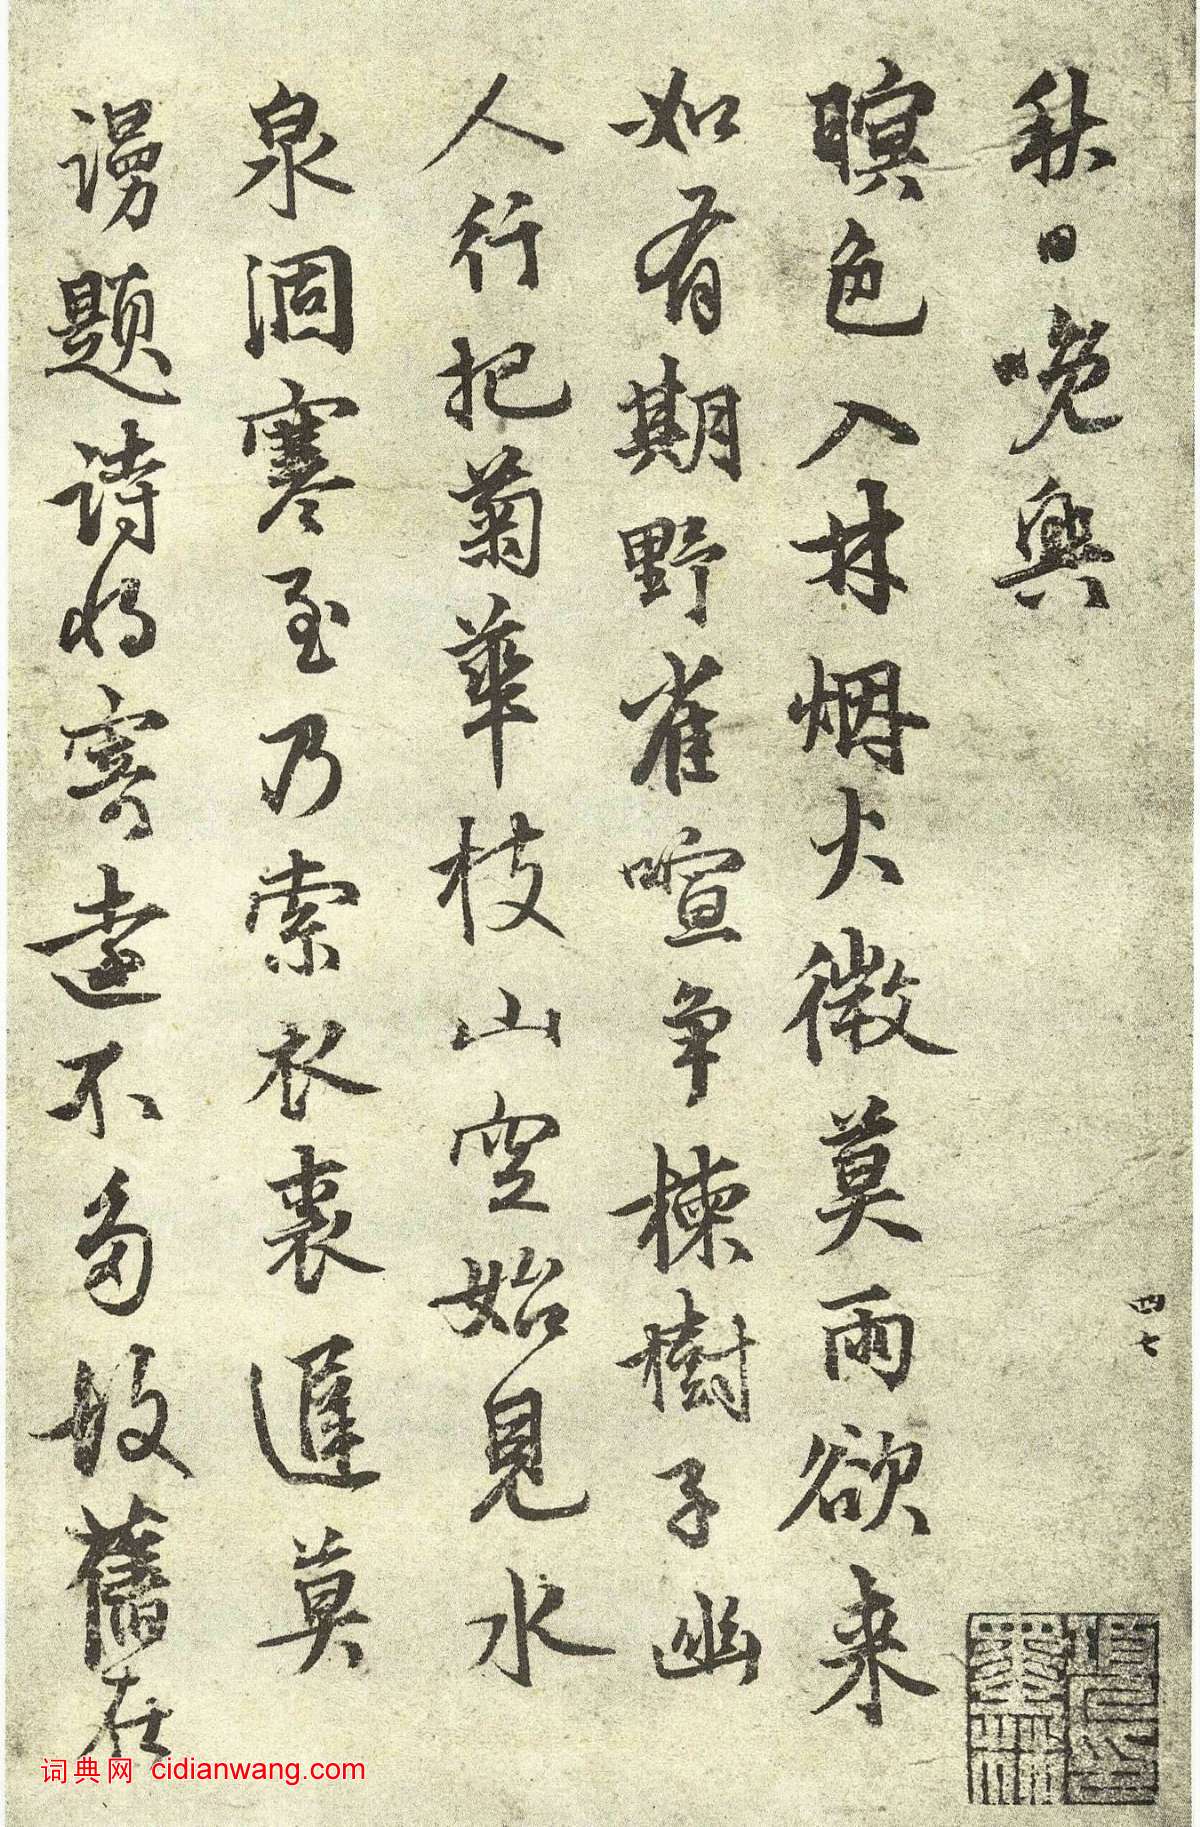 秋日晚興
暝色入林烟火微莫雨欲来
如有期野雀喧争楝樹子幽
人行把菊華枝山空始見水
泉涸寒至乃索衣裘遲莫
謾題詩将寄遠不多故舊在
四七
词典网 cidianwang.com